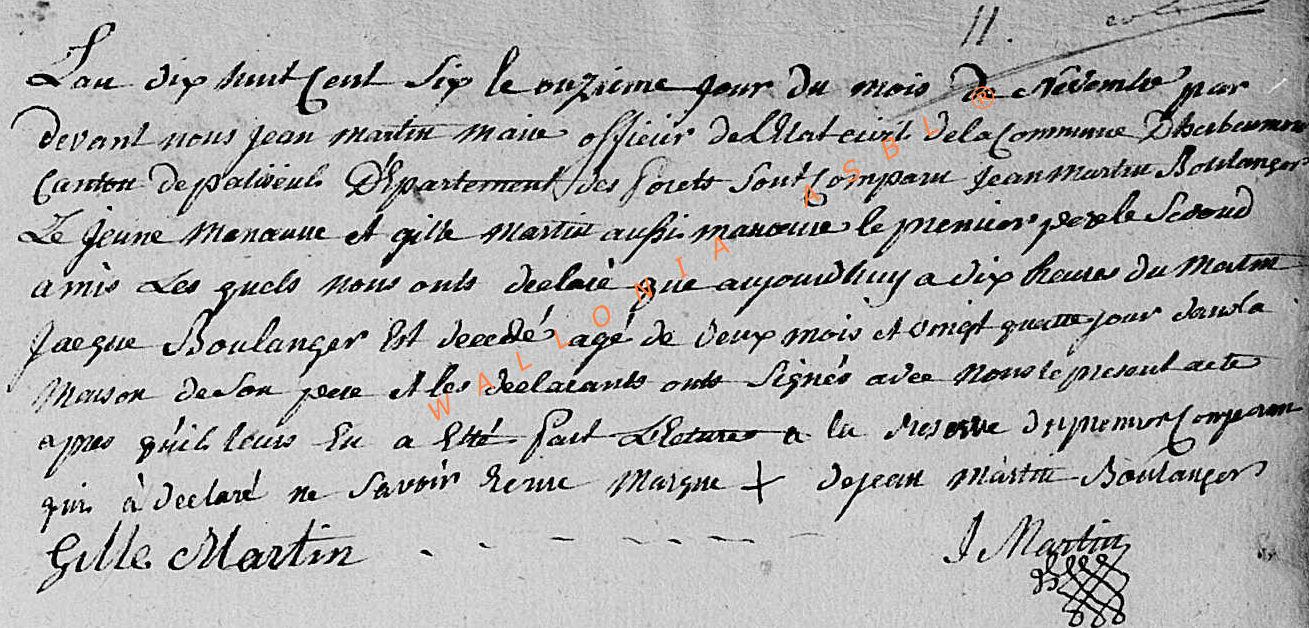 11.
L'an dix huit Cent Six le onzieme jour du mois de Novembre par
devant nous jean martin maire officier de L'Etat civil de la Commune D'herbeumont
Canton de paliseul Département des forets sont Comparu Jean Martin Boulanger
Le jeune manœuvre et gille Martin aussi manœuvre le premier pere le Second
amis Les quels nous onts declaré que aujourdhuy a dix heures du Matin
Jacque Boulanger Est decedé agé de deux mois et vingt quatre jour dans la
Maison de Son pere et les declarants onts Signés avec Nous le present acte
apres qu'il leurs En a Eté fait Lecture a la Reserve du premier Comparant
qui à declaré ne Savoir Ecrire Marque + de jean Martin Boulanger
Gille Martin J Martin
WALLONIA ASBL ®